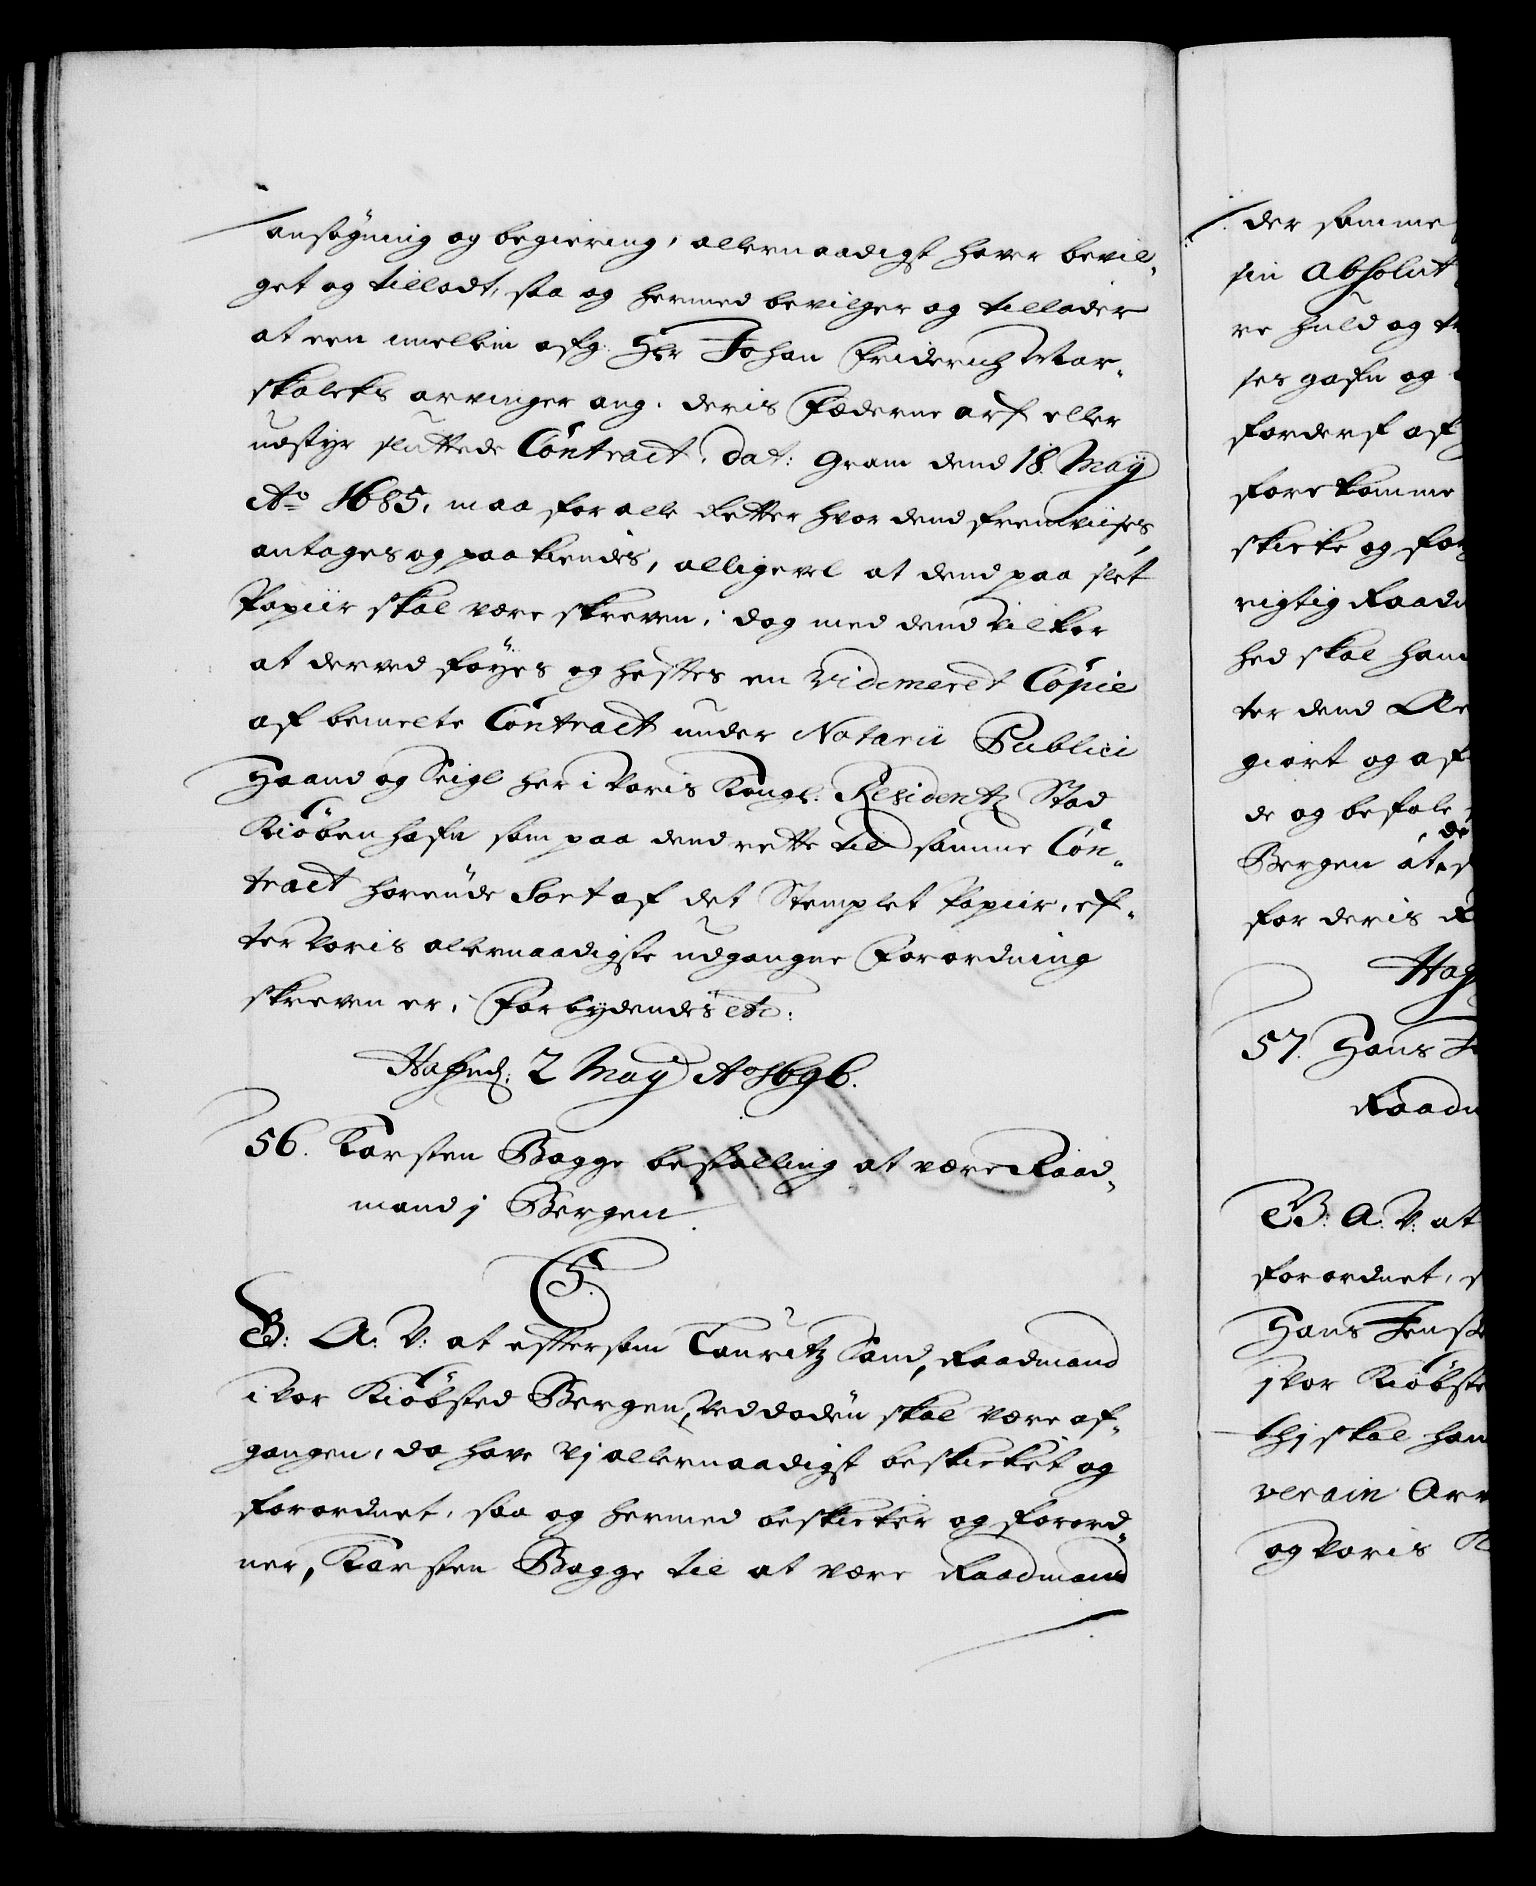 ansøgning og begiering, allernaadigst haver bevil-
get og tilladt, saa og hermed bevilger og tillader
at een imellem afg: Hr Johan Friderich Mar-
skalcks arvinger ang. deris Fæderne arf eller
udstyr sluttede Contract, dat: Gram dend 18 Maÿ
Ao 1685, maa for alle Retter hvor dend fremviises,
antages og paakiendes, alligevel at dend paa slet
Papiir skal være skreven, dog med dend vilkor
at derved føyes og heftes en Vidimeret Copie
af bemelte Contract under Notarii Publici
Haand og Seigl her i Voris Kongl: Residentz Stad
Kiøbenhafn som paa dend rette til samme Con-
tract hørende Sort af det Stemplet Papiir, ef-
ter Voris allernaadigste udgangne Forordning
skreven er, Forbydendes etc:
Hafnd: 2 Maÿ Ao 1696.
56. Karsten Bagge bestalling at være Raad-
mand j Bergen.
C5.
G: A: V: at eftersom Lauritz Sand, Raadmand
i Vor Kiøbsted Bergen, ved døden skal være af-
gangen, da have Vj allernaadigst beskicket og
forordnet, saa og hermed beskicker og forord-
ner, Karsten Bagge til at være Raadmand
der samme
sin Absolut
re huld og
ses gafn og
forderf af
forekomme
skicke og
rigtig Raadm
hed skal ham
ter dend
giort og af
de og befale
Bergen at
for deris
57. Hans
Raadm
B: A: V: at
forordnet,
Hans Jens
j Vor Kiøbste
thj skal han
verain Arv
og Voris